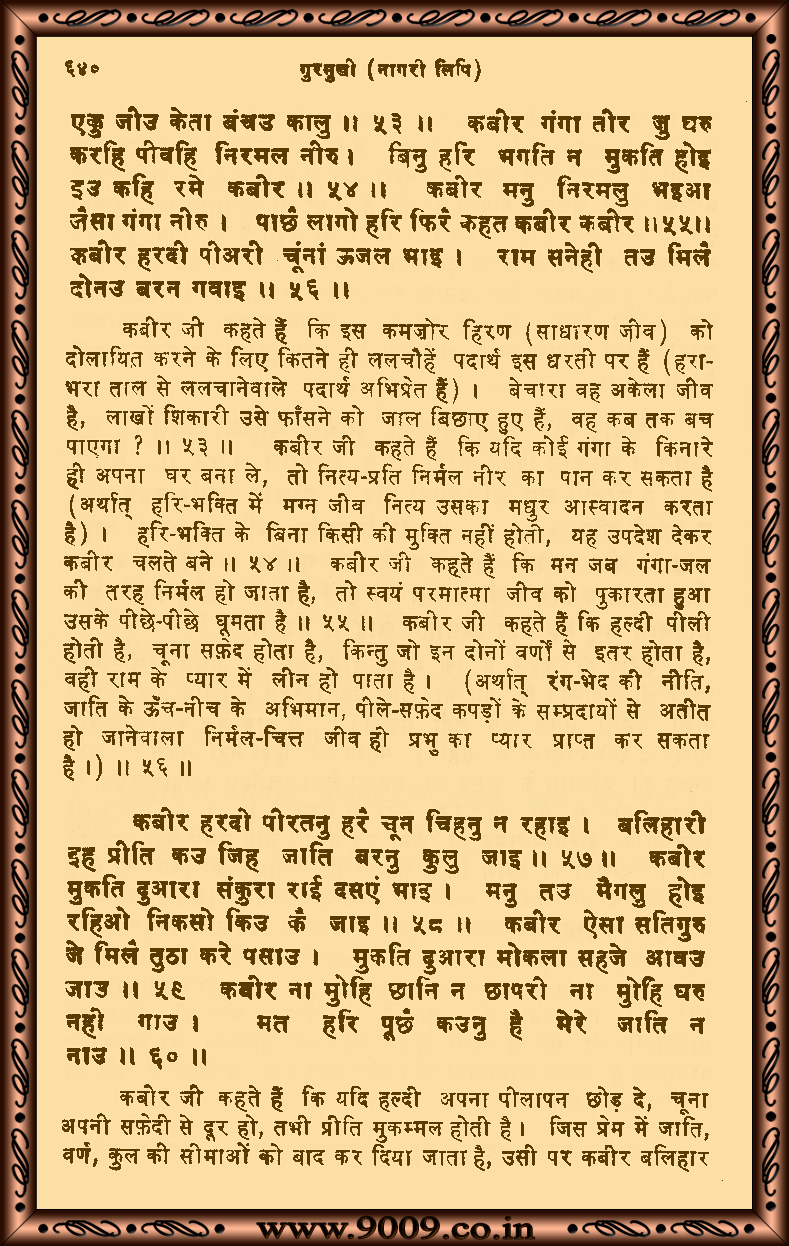 ६४०
गुरमुखी (नागरी लिपि)
एकु जीउ केता बंचउ कालु ॥ ५३ ॥ कबीर गंगा तीर जु घरु
करहि पीवहि निरमल नीरु । बिनु हरि भगति न मुकति होइ
इउ कहि रमे कबीर ॥ ५४ ॥ कबीर मनु निरमलु भइआ
जैसा गंगा नीरु । पाछै लागो हरि फिरै कहत कबीर कबीर ॥५५॥
कबीर हरदी पीअरी चूंनां ऊजल भाइ । राम सनेही तउ मिलै
दोनउ बरन गवाइ ॥ ५६ ॥
कबीर जी कहते हैं कि इस कमज़ोर हिरण (साधारण जीव) को
दोलायित करने के लिए कितने ही ललचौहें पदार्थ इस धरती पर हैं (हरा-
भरा ताल से ललचानेवाले पदार्थ अभिप्रेत हैं) । बेचारा वह अकेला जीव
है, लाखों शिकारी उसे फाँसने को जाल बिछाए हुए हैं, वह कब तक बच
पाएगा ? ॥ ५३ ॥ कबीर जी कहते हैं कि यदि कोई गंगा के किनारे
ही अपना घर बना ले, तो नित्य-प्रति निर्मल नीर का पान कर सकता है
(अर्थात् हरि-भक्ति में मग्न जीव नित्य उसका मधुर आस्वादन करता
है) । हरि-भक्ति के बिना किसी की मुक्ति नहीं होती, यह उपदेश देकर
कबीर चलते बने ॥ ५४ ॥ कबीर जी कहते हैं कि मन जब गंगा-जल
की तरह निर्मल हो जाता है, तो स्वयं परमात्मा जीव को पुकारता हुआ
उसके पीछे-पीछे घूमता है ॥ ५५ ॥ कबीर जी कहते हैं कि हल्दी पीली
होती है, चूना सफ़ेद होता है, किन्तु जो इन दोनों वर्णों से इतर होता है,
वही राम के प्यार में लीन हो पाता है । (अर्थात् रंग-भेद की नीति,
जाति के ऊँच-नीच के अभिमान, पीले-सफ़ेद कपड़ों के सम्प्रदायों से अतीत
हो जानेवाला निर्मल-चित्त जीव ही प्रभु का प्यार प्राप्त कर सकता
है ।) ॥ ५६ ॥
कबीर हरदी पीरतनु हरै चून चिहनु न रहाइ । बलिहारी
इह प्रीति कउ जिह जाति बरनु कुलु जाइ ॥ ५७ ॥ कबीर
मुकति दुआरा संकुरा राई दसएं भाइ । मनु तउ मैगलु होइ
रहिओ निकसो किउ कै जाइ ॥ ५८ ॥ कबीर ऐसा सतिगुरु
जे मिलै तुठा करे पसाउ । मुकति दुआरा मोकला सहजे आवउ
जाउ ॥ ५९ कबीर ना मुोहि छानि न छापरी ना मुोहि घरु
नही गाउ । मत हरि पूछै कउनु है मेरे जाति न
नाउ ॥ ६० ॥
कबीर जी कहते हैं कि यदि हल्दी अपना पीलापन छोड़ दे, चूना
अपनी सफ़ेदी से दूर हो, तभी प्रीति मुकम्मल होती है । जिस प्रेम में जाति,
वर्ण, कुल की सीमाओं को बाद कर दिया जाता है, उसी पर कबीर बलिहार
www.9009.co.in